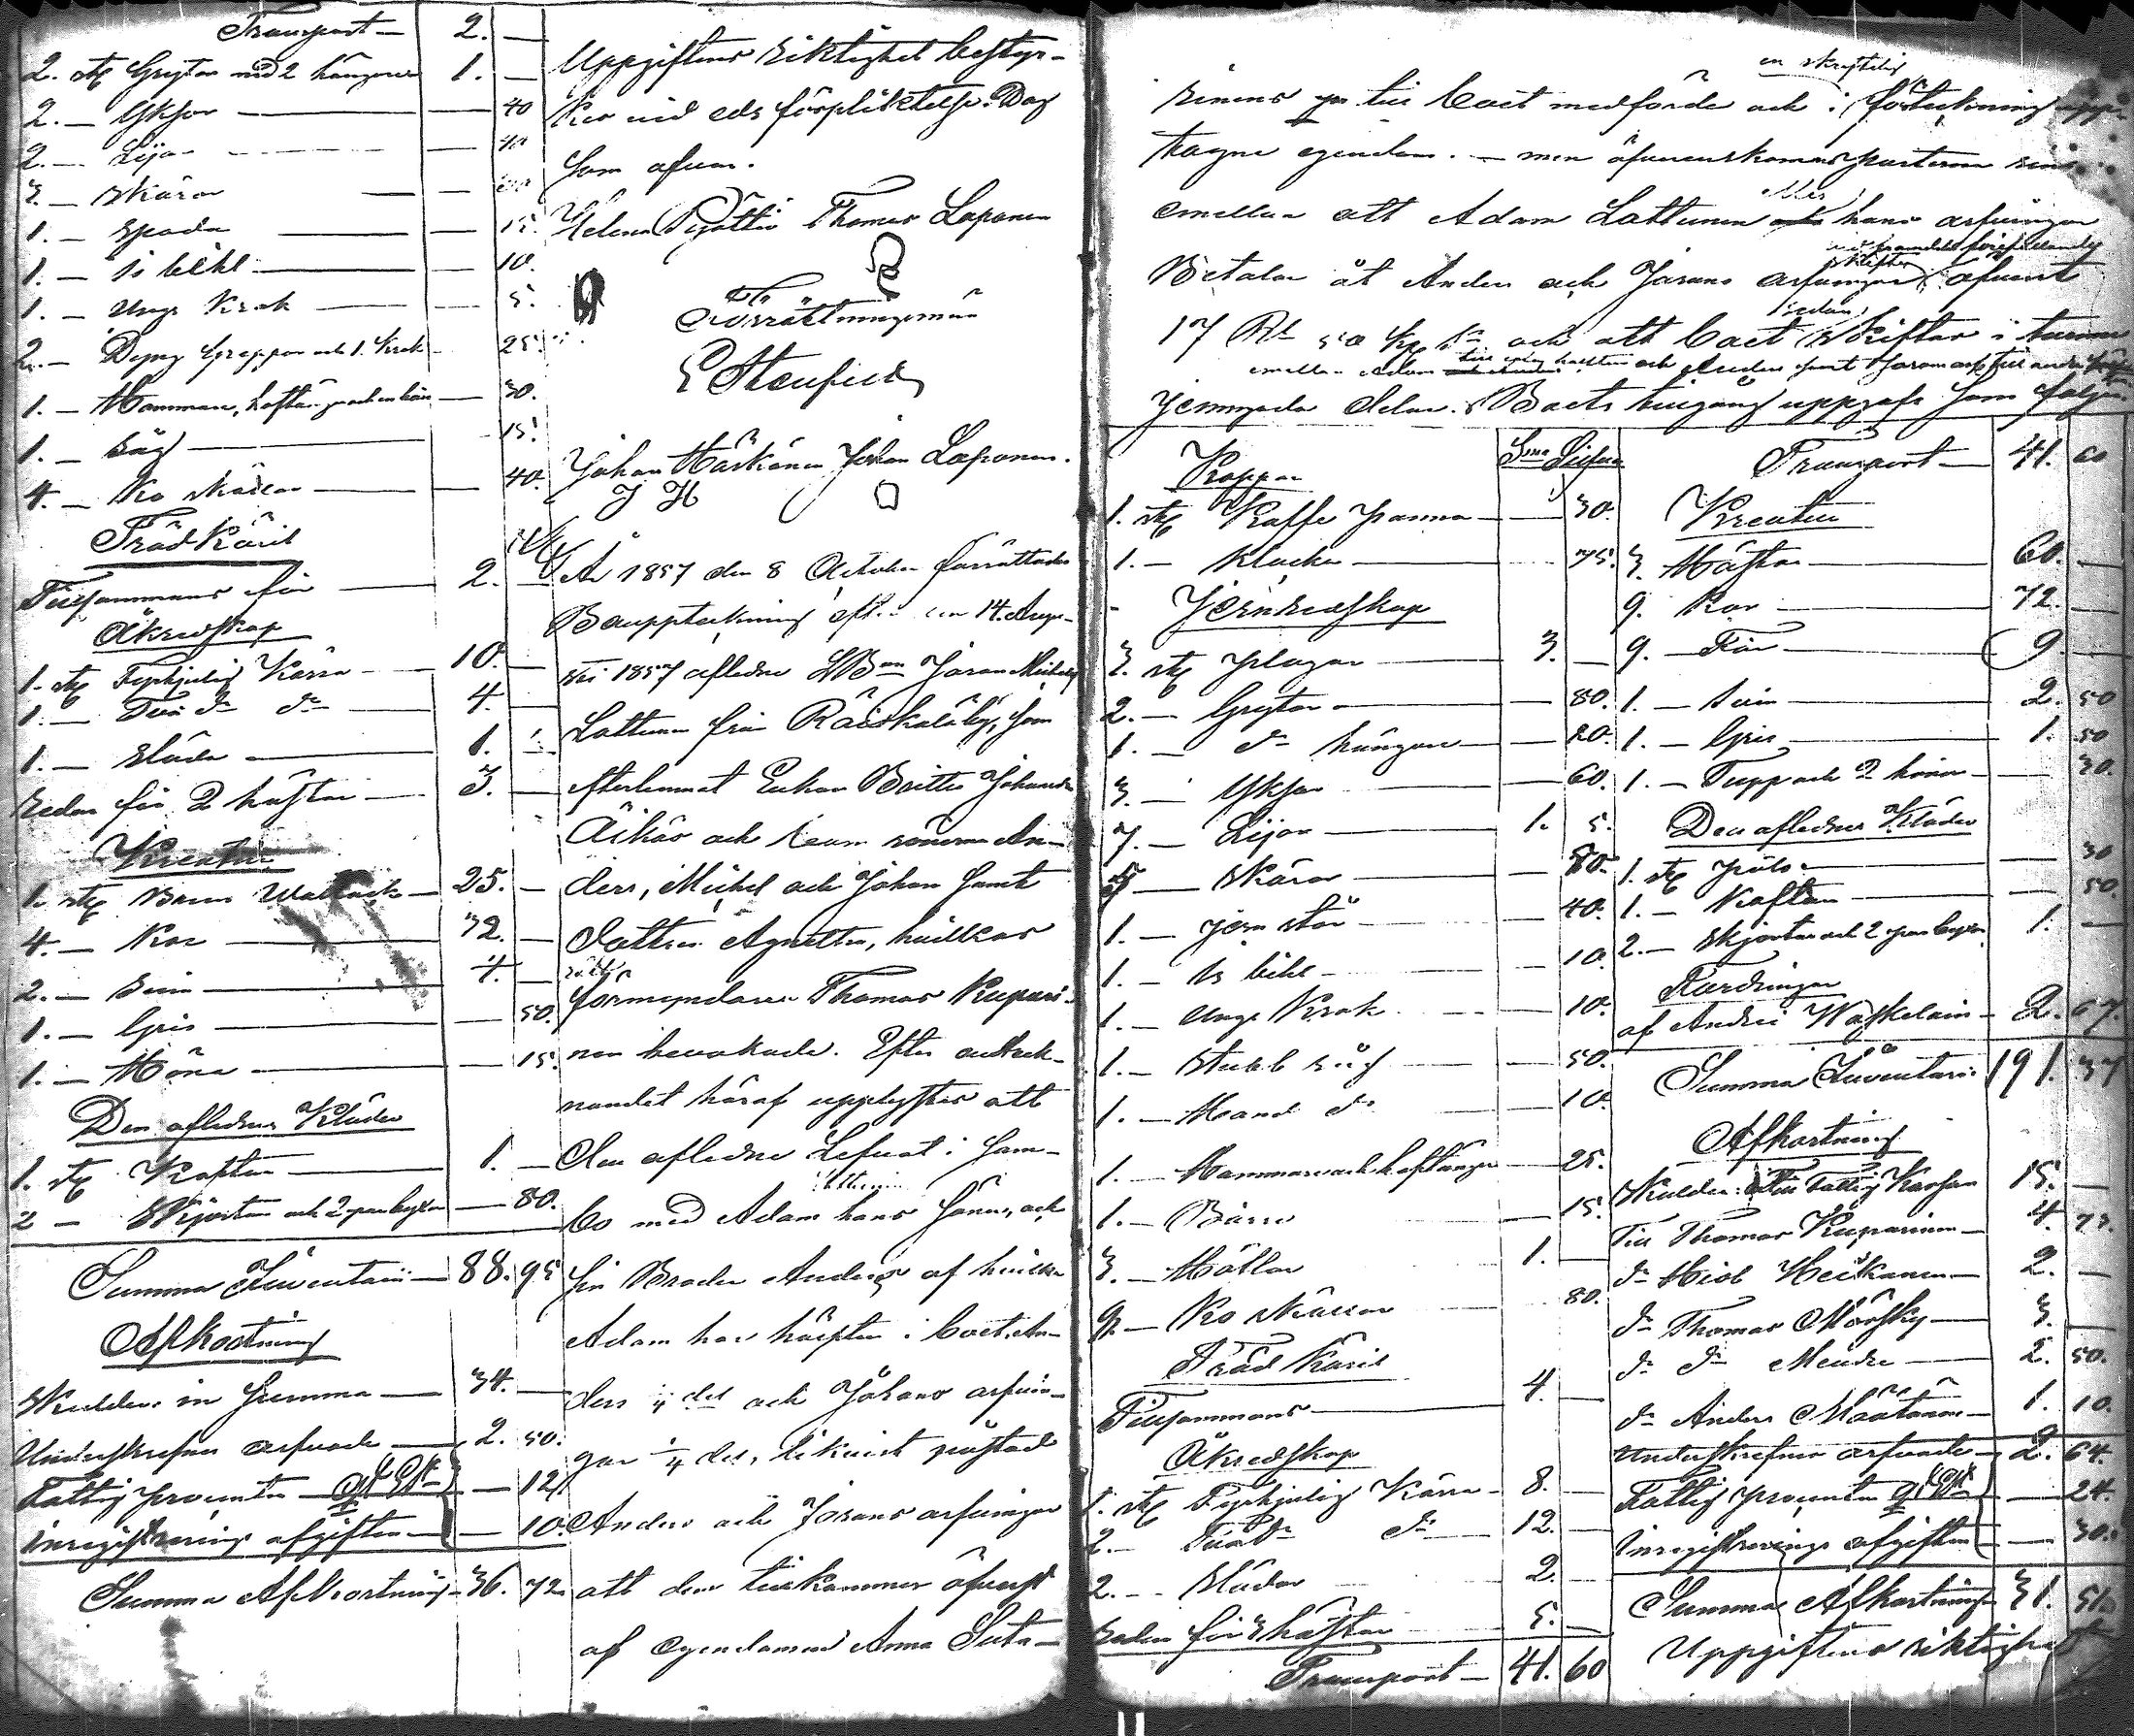 Transport — 2. —
2. st. Grytor med 2 hängare 1. —
2. — Yxor — 40
2. — Lijor — 40
3. — Skäror —
1. — Spada — 15.
1. — is bihl — 10.
1. — Ungs Krok — 5.
2. — Dyng Greppar och 1. Krok — 25.
1. — Hammare, hoftång — 30.
1. — Såg — 15.
4. — Ko skällor — 40.
Träd Käril
Tillsammans för — 2. —
Åkredskap
1. st. Fyrhjulig Kärra — 10. —
1. — Två d:o d:o — 4. —
1. — Släda — 1. —
Seldon för 2 hästar — 3. —
Kreatur
1. st. Brun Wallack — 25. —
4. — Kor — 32. —
2. — Svin — 4. —
1. — Gris — 50.
1. — Höna — 15.
Den aflednes Kläder
1. st. Kaftan — 1. —
2 — Skjortor och 2 par byxor — 80.
Summa Inventarii — 88. 95
Afkortning
Skulder in Summa — 34. —
Underskrefnes arfvode — 2. 50.
Fattig procenten — 12
Inregistrerings afgiften — 10
Summa Afkortning — 36. 72
Uppgiftens riktighet bestyr-
kes vid eds förpliktelse. Dag
som ofvan.
Helena Pyöttiö Thomas Laponen
Förrättningsmän
E Stenfield
Johan Härkönen Johan Laponen.
J H
År 1857 den 8 October förrättades
Bouppteckning efter den 14 Augu-
sti 1857 afledne Göran Michelss
Lattunen från Räiskälä by, som
efterlemnat Enkan Britta Johansdr
Äikäs och barn sönerne An-
ders, Michel och Johan samt
dottren Agnetta, hvilkas
rätt
förmyndaren Thomas Kupari-
nen bevakade. Efter anteck-
nandet häraf upplystes att
den aflednes Lefvat i Sam-
Lattunen
bo med Adam hans söner, och
sin Broder Anders af hvilka
Adam har hälften i boet, An-
ders ¼ del och Jörans arfvin-
gar ¼ del, likväl påstod
Anders och Jörans arfvingar
att dem tillkommer äfven
af egendomen Anna Suta-
en skriftelig
rinens till boet medförde och i förteckning upp-
tagne egendom. — men öfverenskommo parterna sins
eller
emellan att Adam Lattunen hans arfvingar
Betalar åt Anders och Jörans arfvingar
17 Rb 50 Kop och att boet sedan skiftas i tvenne
jemngoda delar. Boets tillgång uppgafs som följer.
Koppar Smt Silfver
1. st. Kaffe panna — 30.
1. — Klocka — 75.
Jernredskap
3. st. plogar — 3. —
2. — Grytor — 80.
1. — d:o hängare — 20.
3. — Yxor — 60.
7. — Lijor — 1. 5.
5 — Skäror — 50.
1. — jern stör — 40.
1. — is bihl — 10.
1. — Ungs Krok — 10.
1. — Stubb såg — 50.
1. — Hand d:o — 10.
1. — Hammare och hoftånger — 25.
1. — Bärre — 15.
3. — Hötlar — 1. —
9. — Ko skällor — 80.
Träd Käril
Tillsammans — 4. —
Åkredskap
1. st. Fyrhjulig Kärra — 8. —
2. — Två d:o d:o — 12. —
2. — Slädor — 2. —
Seldon för 3 hästar — 5. —
Transport — 41. 60
Transport — 41. 60
Kreatur
3. Hästar — 60. —
9. Kor — 72. —
9. — Får — 9. —
1. — Svin — 2. 50
1. — Gris — 1. 50
1. — Tupp och 2 hönor — 30.
Den aflednes Kläder
1. st. päls — 30
1. — Kaftan — 50.
2. — Skjortor och 2 par byxor 1. —
Fordringar
af Andrei Waskelain — 2. 67.
Summa Inventarii 191. 37
Afkortning
Skulder: Till Fattig Kassan 15. —
Till Thomas Kuparinen — 4. 73.
d:o Hiob Heikonen — 2. —
d:o Thomas Mörsky — 3. —
d:o d:o Meuder — 2. 50.
d:o Anders Määttänen — 1. 10.
Underskrefnes arfvode — 2. 64.
Fattig procenten — 24.
Inregistrerings afgiften — 30.
Summa Afkortning 31. 51
Uppgiftens riktighet